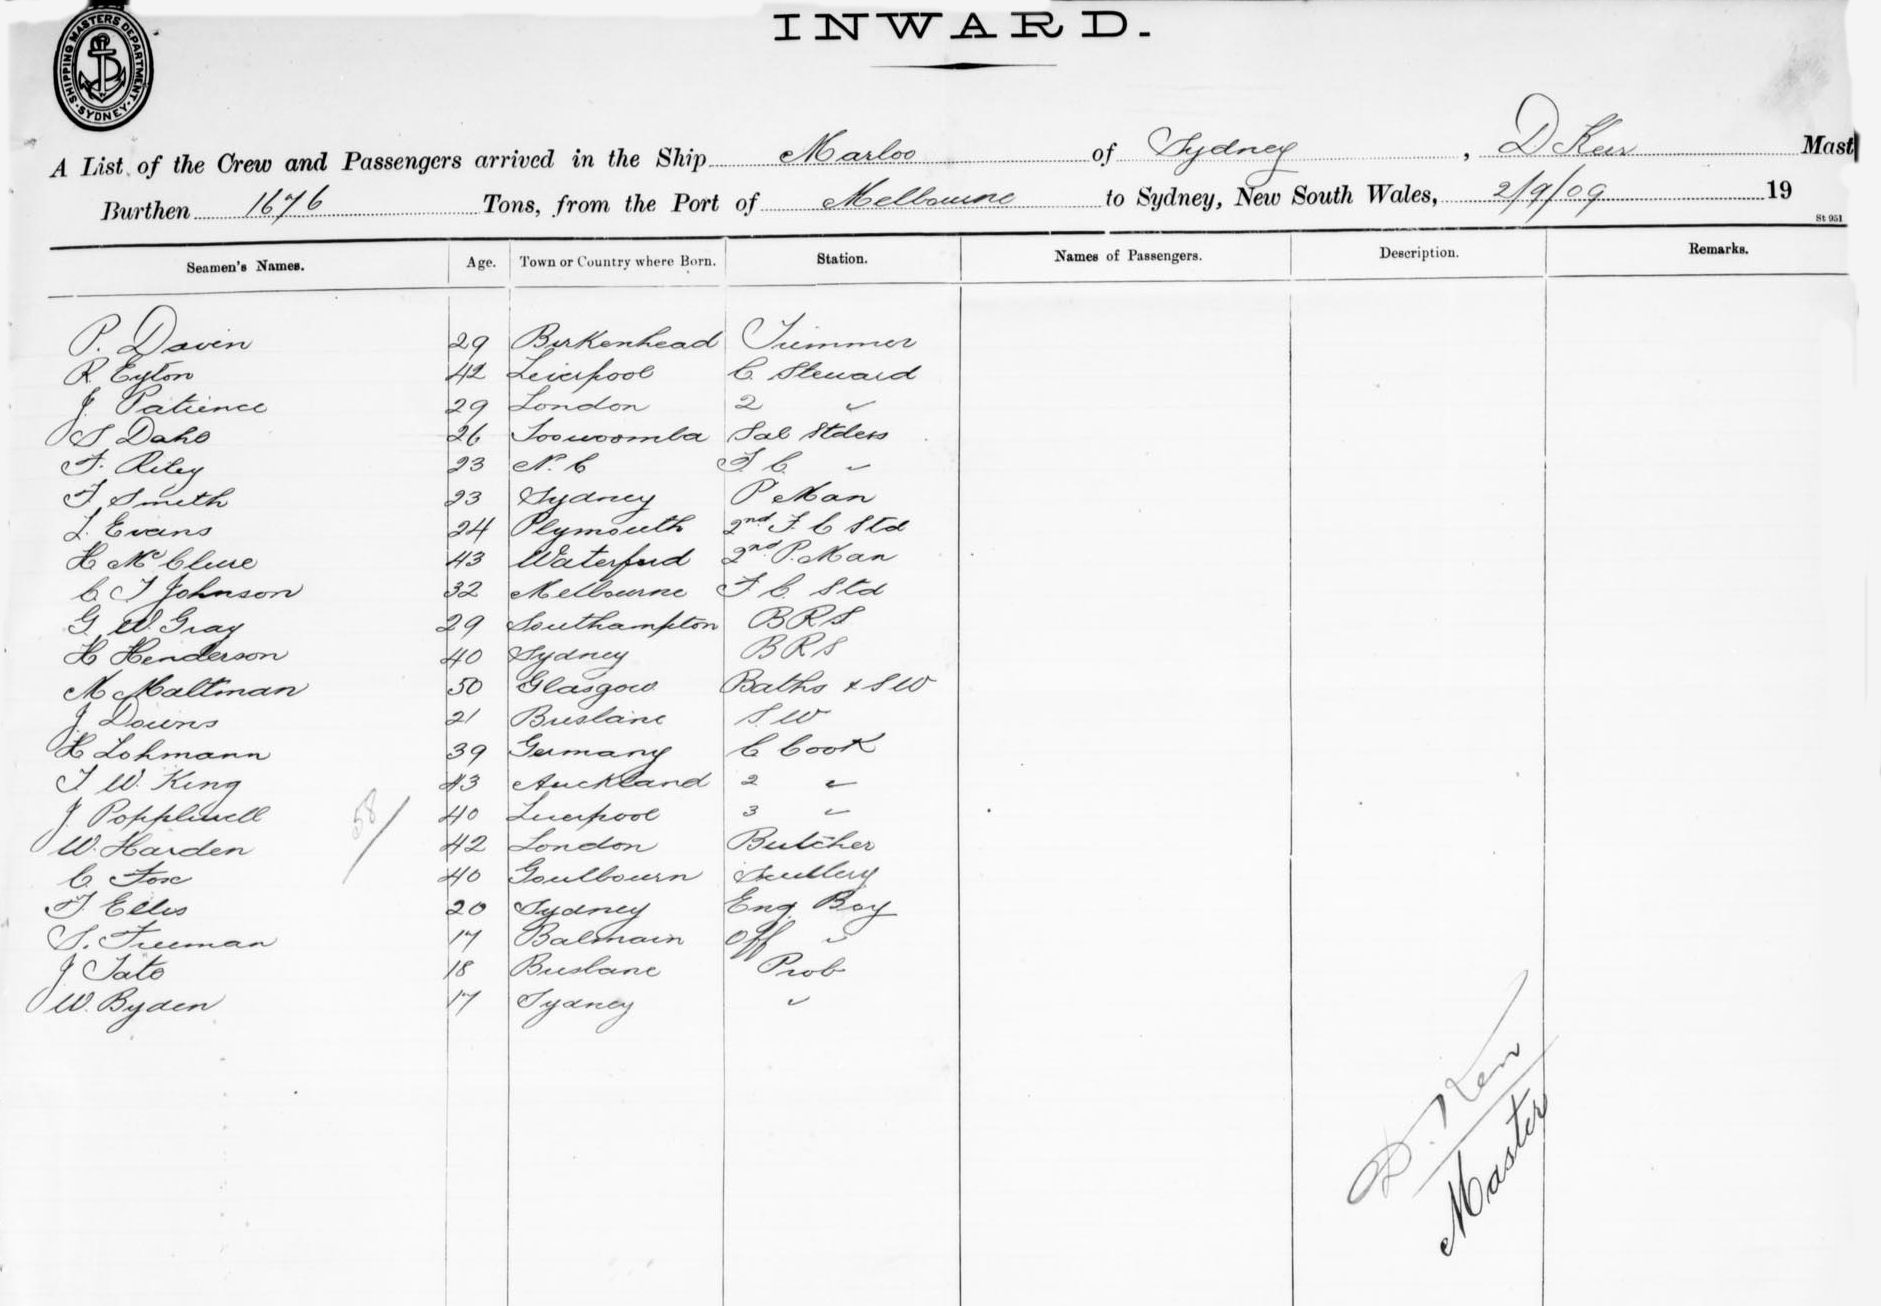 INWARD.
SHIPPING MASTERS DEPARTMENT · SYDNEY ·
A List of the Crew and Passengers arrived in the Ship Marloo of Sydney, D Keir Mast
Burthen 1676 Tons, from the Port of Melbourne to Sydney, New South Wales, 2/9/09 19
St 951
Seamen's Names. Age. Town or Country where Born. Station. Names of Passengers. Description. Remarks.
P. Davin 29 Birkenhead Trimmer
R Eyton 42 Liverpool C. Steward
J. Patience 29 London 2 "
S Daho 26 Toowoomba Sal Stdess
F. Riley 23 N. C F. C. "
F. Smith 23 Sydney P Man
L. Evans 24 Plymouth 2nd F. C Std
H McClure 43 Waterford 2nd P. Man
C T Johnson 32 Melbourne F C. Std
G. W. Gray 29 Southampton BRS
H Henderson 40 Sydney BRS
M Maltman 50 Glasgow Baths & SW
J Downs 21 Brisbane S. W
H Lohmann 39 Germany C Cook
T W. King 43 Auckland 2 "
J. Popplewell 40 Liverpool 3 "
58/
W. Harden 42 London Butcher
C. Fox 40 Goulbourn Scullery
F. Ellis 20 Sydney Eng. Boy
S. Freeman 17 Balmain Off "
J Tate 18 Brisbane Prob
W. Byden 17 Sydney "
D. Keir
Master